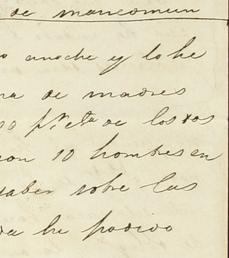 de mancomun
anoche y lo he
de madres
de los dos
10 hombres en
saber sobre las
he podido